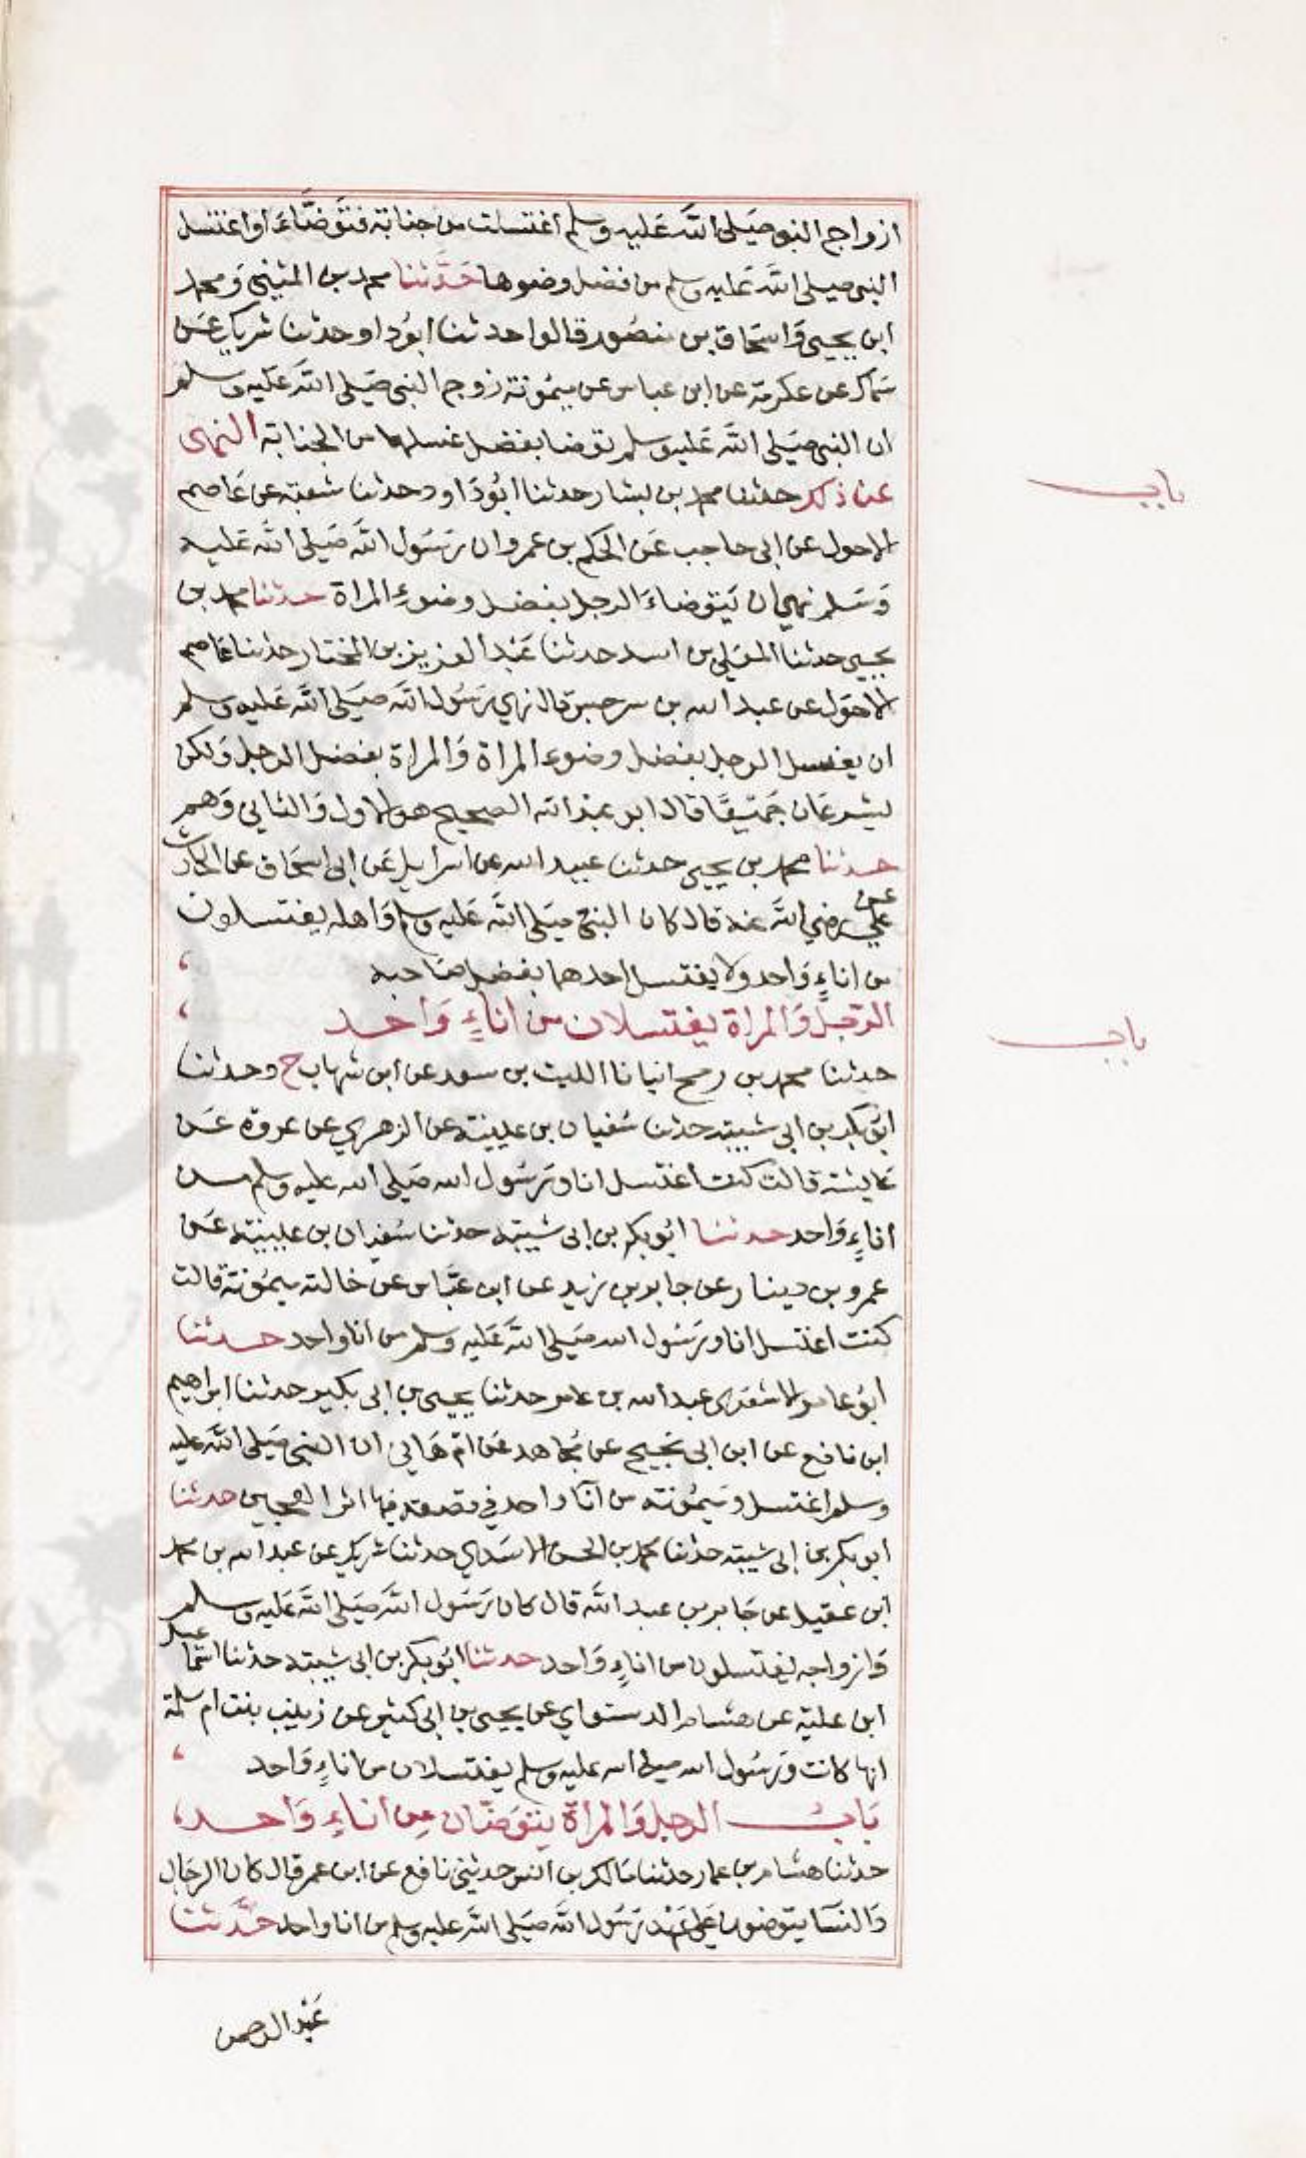 ازواج النبي صَلى اللَّه عَليه وسلم اغتسلت من جنابة فتَوضَّاءَ اواغتسل
النبي صلى اللَّه عَليه وسلم من فضل وضوها حَدَّثنا محمد بن المثني وَمحمد
ابن يحيى وَاسحَاق بن منصُور قالوا حدثنا ابوُداو وحدثنا شريك عَن
سَماك عن عكرمة عن ابن عباس عن ميمُونة زوج النبي صَلى اللَّه عَليه وسلم
ان النبي صَلى اللَّه عَليه وسلم توضا بفضل غسلها من الجنابة النهى
باب
عن ذلك حدثنا محمد بن بشار حدثنا ابُودَاود وحدثنا شعبة عن عَاصم
الاحول عن ابي حاجب عَن الحكم بن عمرو ان رَسُول اللَّه صَلى اللَّه عَليه
وَسَلم نهي ان يَتوضاءَ الرجل بفضل وضوءِ المراة حدثنا محمد بن
يحيى حدثنا المعَلي بن اسد حدثنا عَبْد العزيز بن المختار حدثنا عَاصم
الاحوَل عن عبد الله بن سرجس قال نهي رَسُول اللَّه صَلى اللَّه عَليه وسلم
ان يغتسل الرجل بفضل وضوء المراة وَالمراة بفضل الرجل وَلكن
يشرعَان جَميعًا قال ابو عبد الله الصحيح هو الاول وَالثاني وَهم
حدثنا محمد بن يحيى حدثنا عبيد الله عن اسرايل عَن ابي اسحَاق عن الحارث
عن علي رضي اللَّه عنه قال كان النبي صَلى اللَّه عَليه وسلم وَاهله يغتسلون
من اناءٍ وَاحد ولا يغتسل احدهما بفضل صَاحبه ،
باب
الرَّجل وَالمراة يغتسلان من اناءٍ وَاحد ،
حدثنا محمد بن رمح انبانا الليث بن سعد عن ابن شهاب ح وحدثنا
ابُو بكر بن ابي شيبة حدثنا سُفيان بن عيينة عن الزهري عن عروة عَن
عَايشة قالت كنت اغتسل انا ورَسُول الله صَلى الله عليه وسلم من
اناءٍ وَاحد حدثنا ابُو بكر بن ابي شيبة حدثنا سُفيان بن عيينة عَن
عمرو بن دينار عن جابر بن زيد عن ابن عَبَّاس عن خالته ميمُونة قالت
كنت اغتسل انا ورَسُول الله صَلى اللَّه عَليه وسلم من انا واحد حدثنا
ابُو عامر الاشعَري عبد الله بن عامر حدثنا يحيى بن ابي بكير حدثنا ابراهيم
ابن نافع عن ابن ابي نجيح عن مُجاهد عَن امّ هَاني ان النبي صَلى اللَّه عليه
وسلم اغتسل وَميمُونة من انَا واحد في قصعة فيها اثر العجين حدثنا
ابو بكر بن ابي شيبة حدثنا محمد بن الحسن الاسَدي حدثنا شريك عن عبد الله بن محمد
ابن عقيل عن جَابر بن عبد اللَّه قال كان رَسُول اللَّه صَلى اللَّه عَليه وسلم
وَازواجه يغتسلون من اناءٍ وَاحد حدثنا ابُو بكر بن ابي شيبة حدثنا اسمَاعيل
ابن علية عن هشام الدستواي عن يحيى بن ابي كثير عن زينب بنت ام سلمة
انها كانت وَرسُول الله صلى الله عليه وسلم يغتسلان من اناءٍ وَاحد ،
بَابُ الرجل وَالمراة يتوَضَّان مِن اناءٍ وَاحد ،
حدثنا هشام بن عمار حدثنا مَالك بن انس حدثني نافع عن ابن عمر قال كان الرجَال
وَالنسَا يتوضون عَلى عَهْد رَسُول اللَّه صَلى اللَّه عليه وسلم من انا واحد حدَّثنا
عَبْد الرحمن